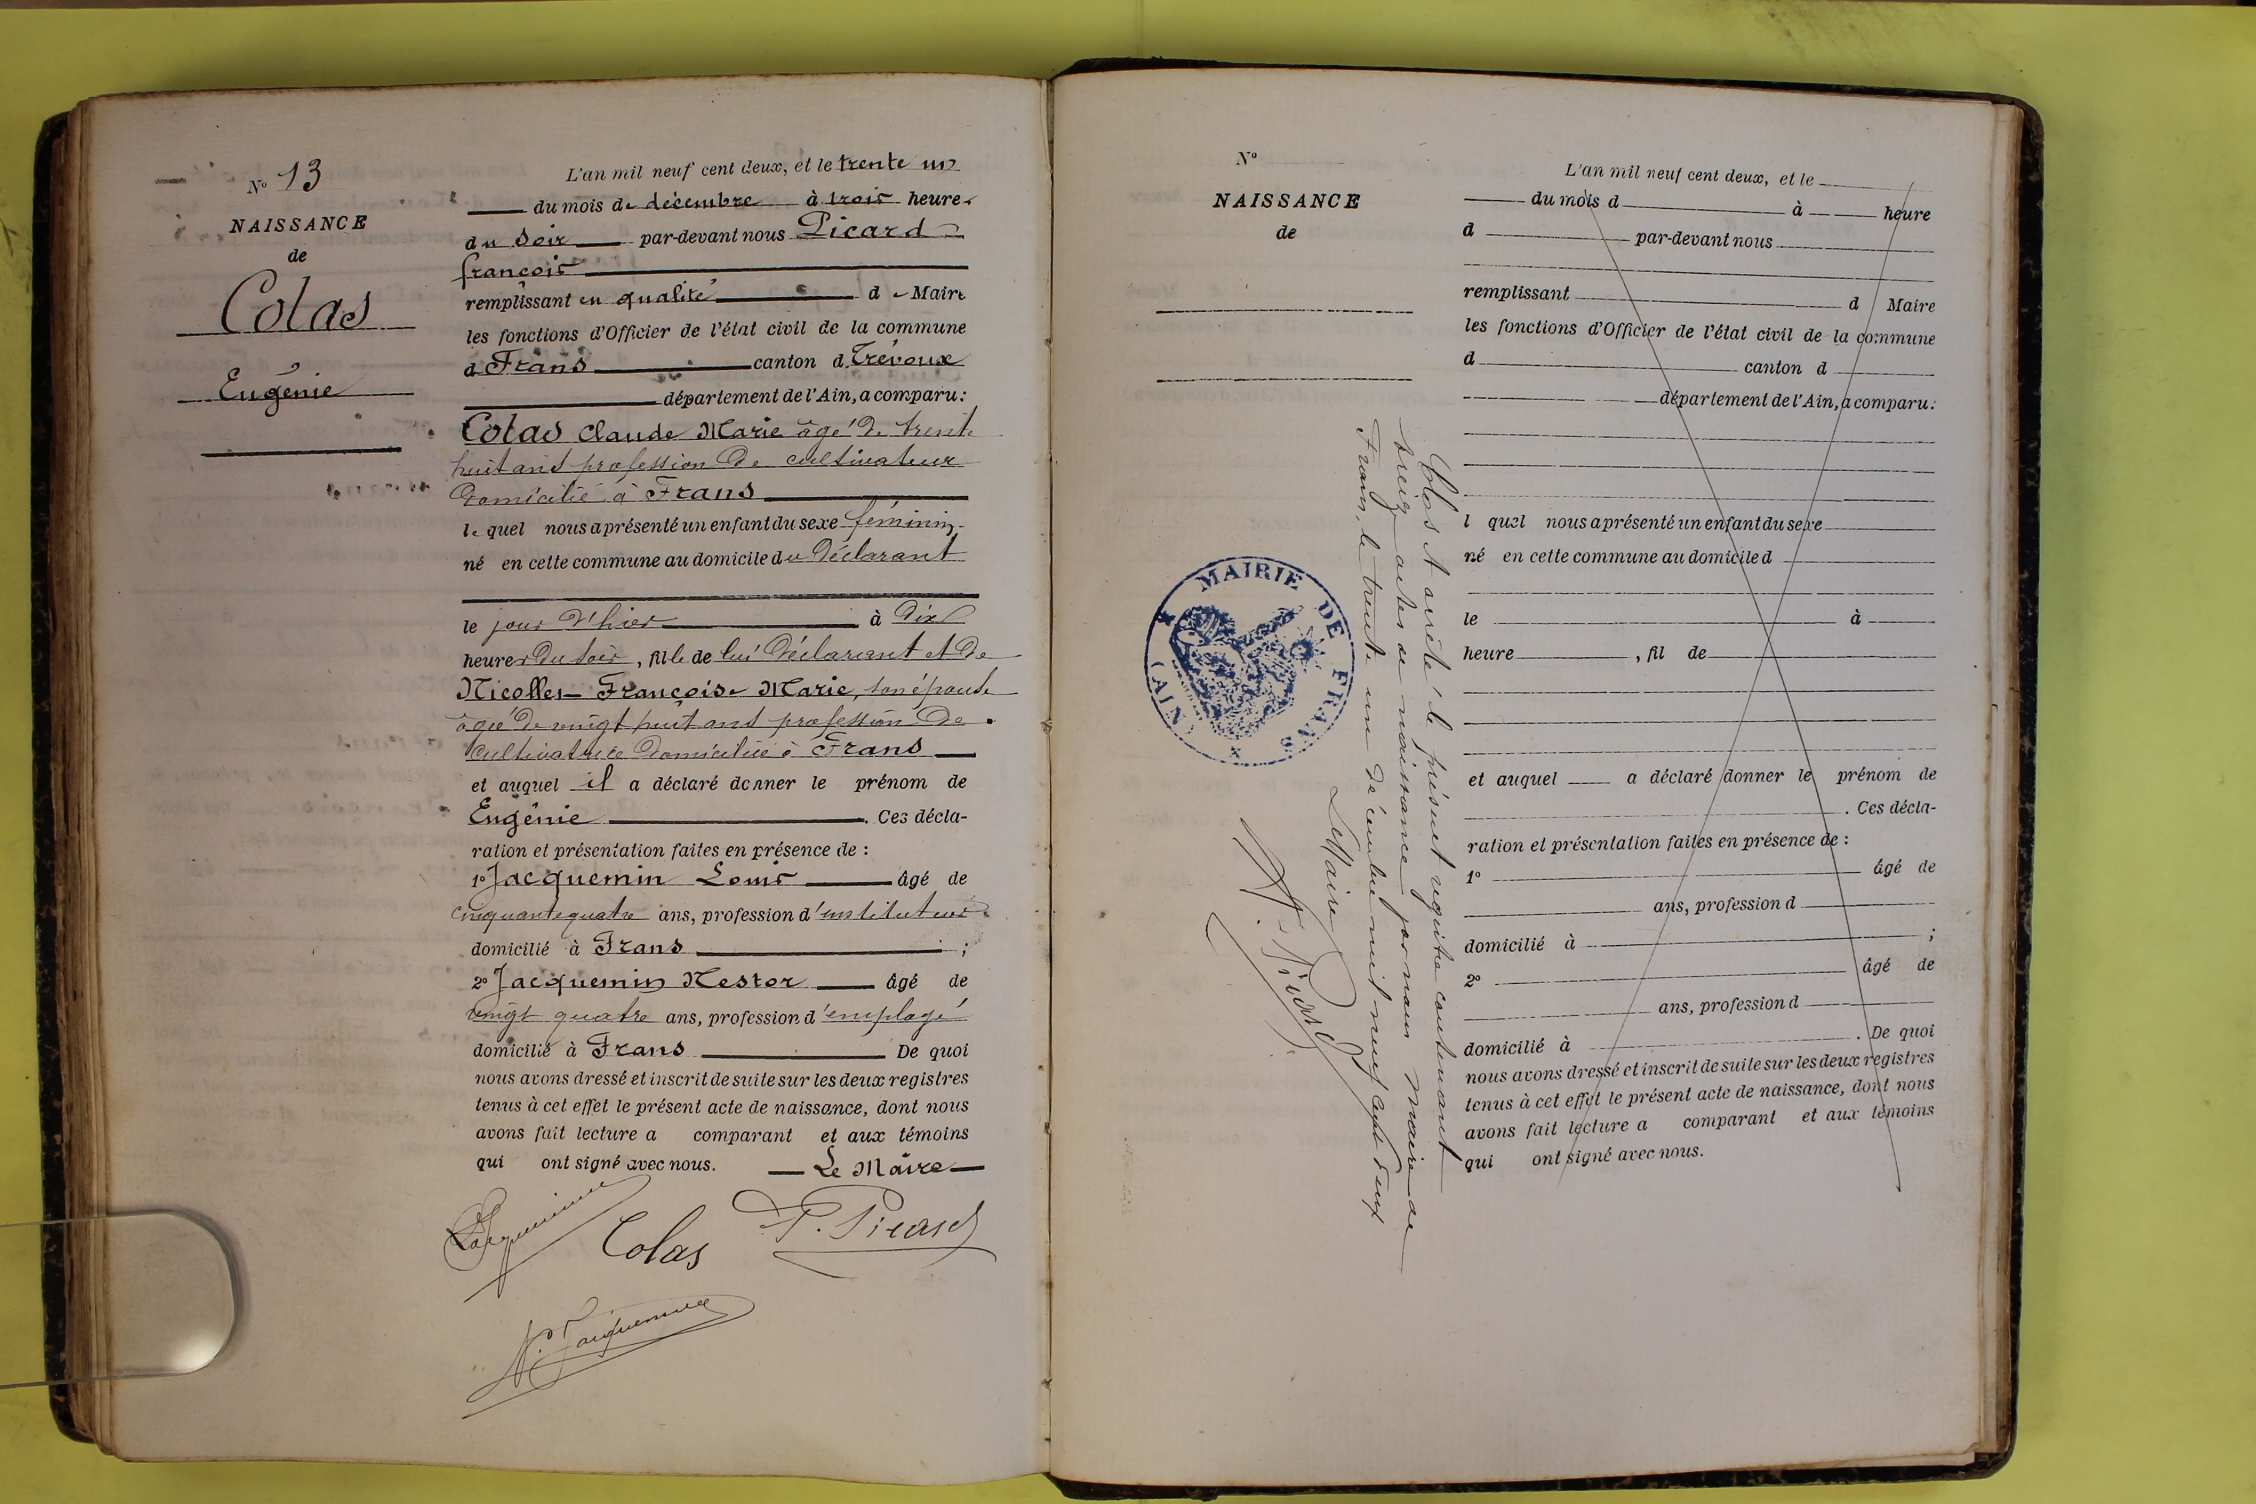 N° 13
NAISSANCE
de
Colas
Eugénie
L'an mil neuf cent deux, et le trente un
du mois de décembre à trois heures
du soir par-devant nous Picard
françois
remplissant en qualité de Maire
les fonctions d'Officier de l'état civil de la commune
d Frans canton d Trévoux
département de l'Ain, a comparu:
Colas Claude Marie âgé de trente
huit ans profession de cultivateur
domicilié à Frans
le quel nous a présenté un enfant du sexe féminin
né en cette commune au domicile du déclarant
le jour d'hier à dix
heures du soir, fille de lui déclarant et de
Nicollet Françoise Marie, son épouse
âgée de vingt huit ans profession de
cultivatrice domiciliée à Frans
et auquel il a déclaré donner le prénom de
Eugénie. Ces décla-
ration et présentation faites en présence de :
1° Jacquemin Louis âgé de
cinquante quatre ans, profession d'instituteur
domicilié à Frans ;
2° Jacquemin Nestor âgé de
vingt quatre ans, profession d'employé
domicilié à Frans De quoi
nous avons dressé et inscrit de suite sur les deux registres
tenus à cet effet le présent acte de naissance, dont nous
avons fait lecture a comparant et aux témoins
qui ont signé avec nous. Le Maire
Jacquemin
Colas
F. Picard
N. Jacquemin
N°
NAISSANCE
de
L'an mil neuf cent deux, et le
du mois d à heure
d par-devant nous
remplissant d Maire
les fonctions d'Officier de l'état civil de la commune
d canton d
département de l'Ain, a comparu:
l quel nous a présenté un enfant du sexe
né en cette commune au domicile d
le à
heure , fil de
et auquel a déclaré donner le prénom de
. Ces décla-
ration et présentation faites en présence de :
1° âgé de
ans, profession d
domicilié à ;
2° âgé de
ans, profession d
domicilié à . De quoi
nous avons dressé et inscrit de suite sur les deux registres
tenus à cet effet le présent acte de naissance, dont nous
avons fait lecture a comparant et aux témoins
qui ont signé avec nous.
Clos et arrêté le présent registre contenant
treize actes de naissance par nous maire de
Frans, le trente un décembre mil neuf cent deux
Le Maire
F. Picard
MAIRIE DE FRANS
(AIN)